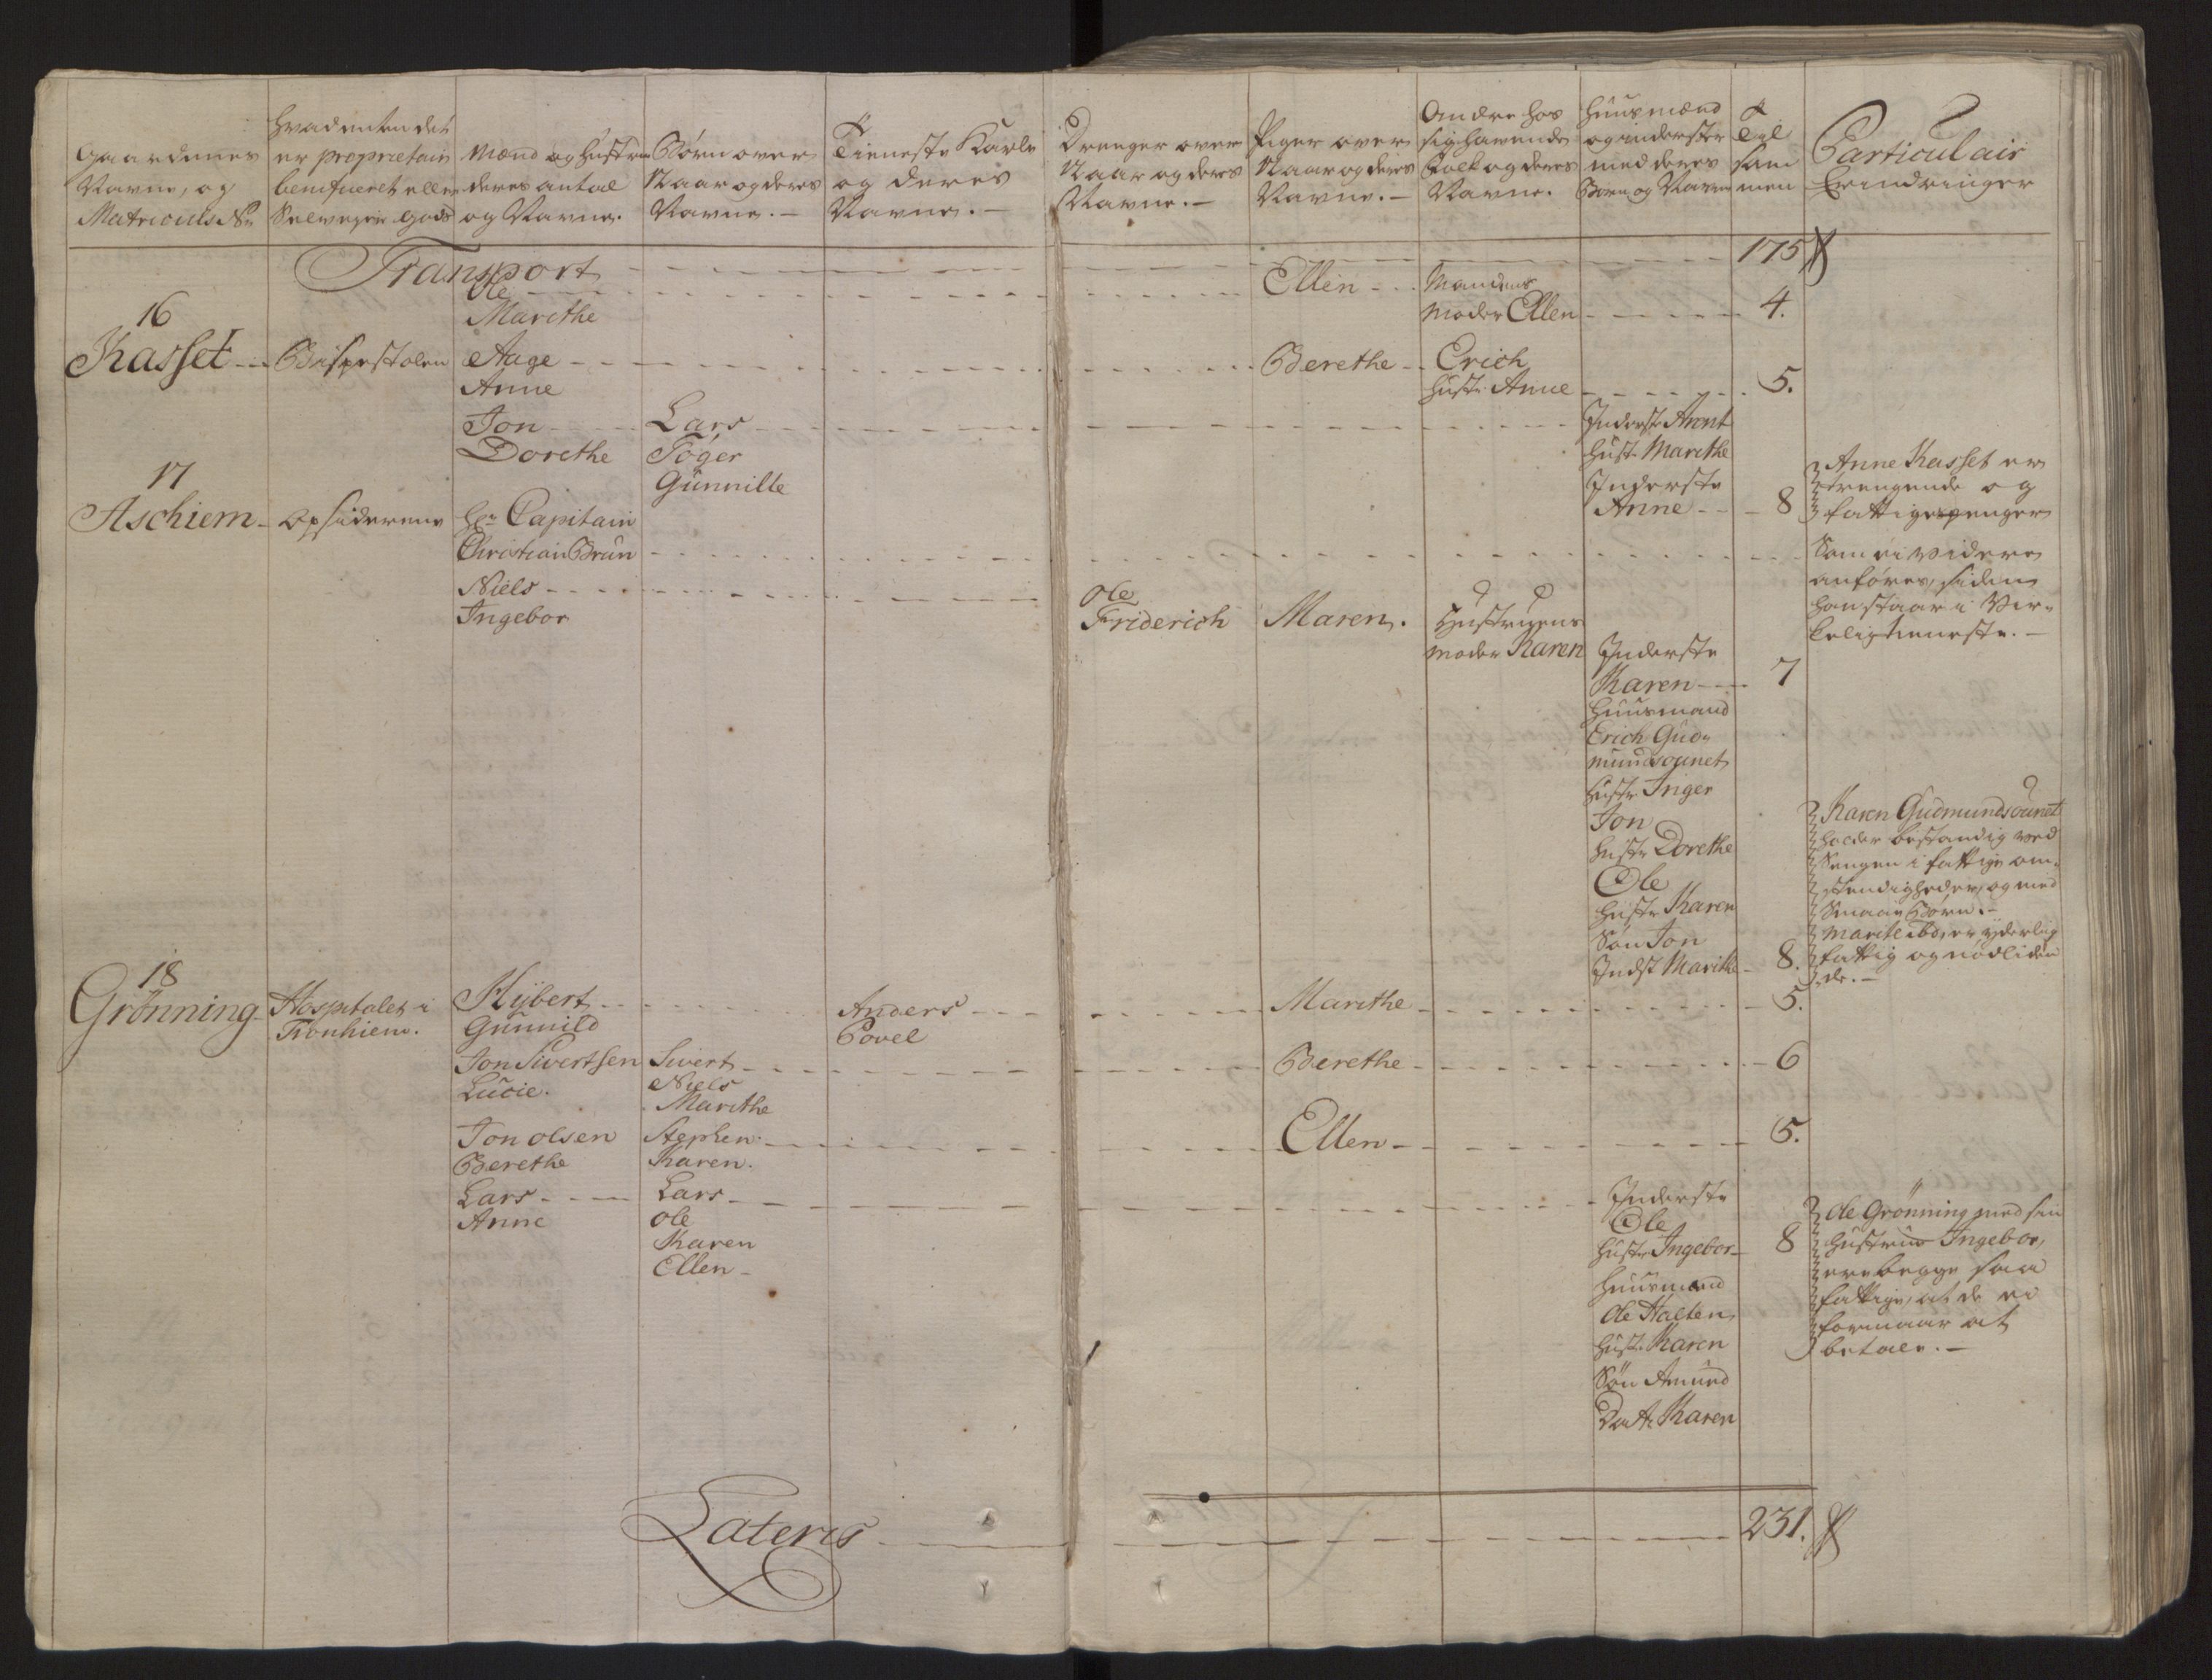 Gaardenes
Navne, og
Matriculs No
Hvad enten det
er proprietair
beneficeret eller
Selveyer Gods
Mænd og Hustruer
deres antal
og Navne.
Børn over
Naar og deres
Navne. -
Tieneste Karle
og deres
Navne. -
Drenger over
Naar og deres
Navne. -
Piger over
Naar og deres
Navne. -
Andre hos
sig havende
Folk og deres
Navne.
Huusmænd
og inderster
med deres
Børn og Navne
Til
sam
men
Particulair
Erindringer
Transport 175
16
Kasset
Bispestolen
Ole
Marethe
Ellen
Mandens
Moder Ellen
4.
Aage
Anne
Berethe
Erich
Hustr Anne
5.
Jon
Dorethe
Lars
Töger
Gunnille
Inderste Arent
Hust. Marethe
Inderste
Anne
8
Anne Kasset er
trengende og
fattig
17
Aschiem
Opsiderene
Hr Capitain
Christian Brun
Som ei videre
anföres, siden
han staar i Vir-
kelig tieneste. -
Niels
Ingebor
Ole
Friderich
Maren.
Hustruens
moder Karen
Inderste
Karen
7
Huusmand
Erich Gud-
mundsounet
Hustr Inger
Jon
Hustr Dorethe
Ole
Hustr Karen
Sön Jon
Indst Marithe
8.
Karen Gudmundsounet
holder bestandig ved
Sengen i fattige om-
stendigheder, og med
Smaae Börn. -
Marite Boe, er yderlig
fattig og nödliden
de. -
18
Grönning
Hospitalet i
Tronhiem.
Hybert
Gunnild
Anders
Povel
Marethe
5.
Jon Sivertsen
Lucie.
Sivert
Niels
Marithe
Berethe
6
Jon olsen
Berethe
Stephen
Karen.
Ellen
5.
Lars
Anne
Lars
Ole
Karen
Ellen
Inderste
Ole
Hustr Ingebor
8
Huusmand
Ole Halten
Hust. Karen
Sön Amund
Datt. Karen
Ole Grönning med sin
Hustrue Ingebor,
ere begge saa
fattige, at de ei
formaar at
betale. -
Lateris 231.